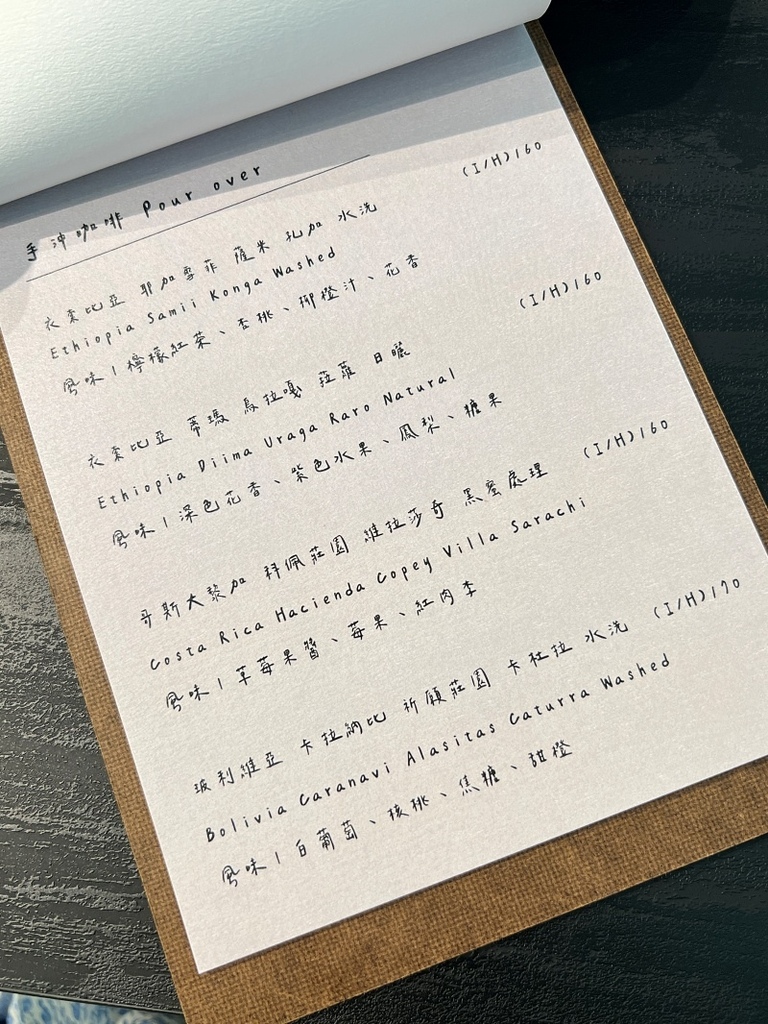 手沖咖啡 Pour over
(I/H)160
衣索比亞 耶加雪菲 薩米 孔加 水洗
Ethiopia Samii Konga Washed
風味|檸檬紅茶、杏桃、柳橙汁、花香
(I/H)160
衣索比亞 蒂瑪 烏拉嘎 菈蘿 日曬
Ethiopia Diima Uraga Raro Natural
風味|深色花香、紫色水果、鳳梨、糖果
(I/H)160
哥斯大黎加 科佩莊園 維拉莎奇 黑蜜處理
Costa Rica Hacienda Copey Villa Sarachi
風味|草莓果醬、莓果、紅肉李
(I/H)170
玻利維亞 卡拉納比 祈願莊園 卡杜拉 水洗
Bolivia Caranavi Alasitas Caturra Washed
風味|白葡萄、核桃、焦糖、甜橙